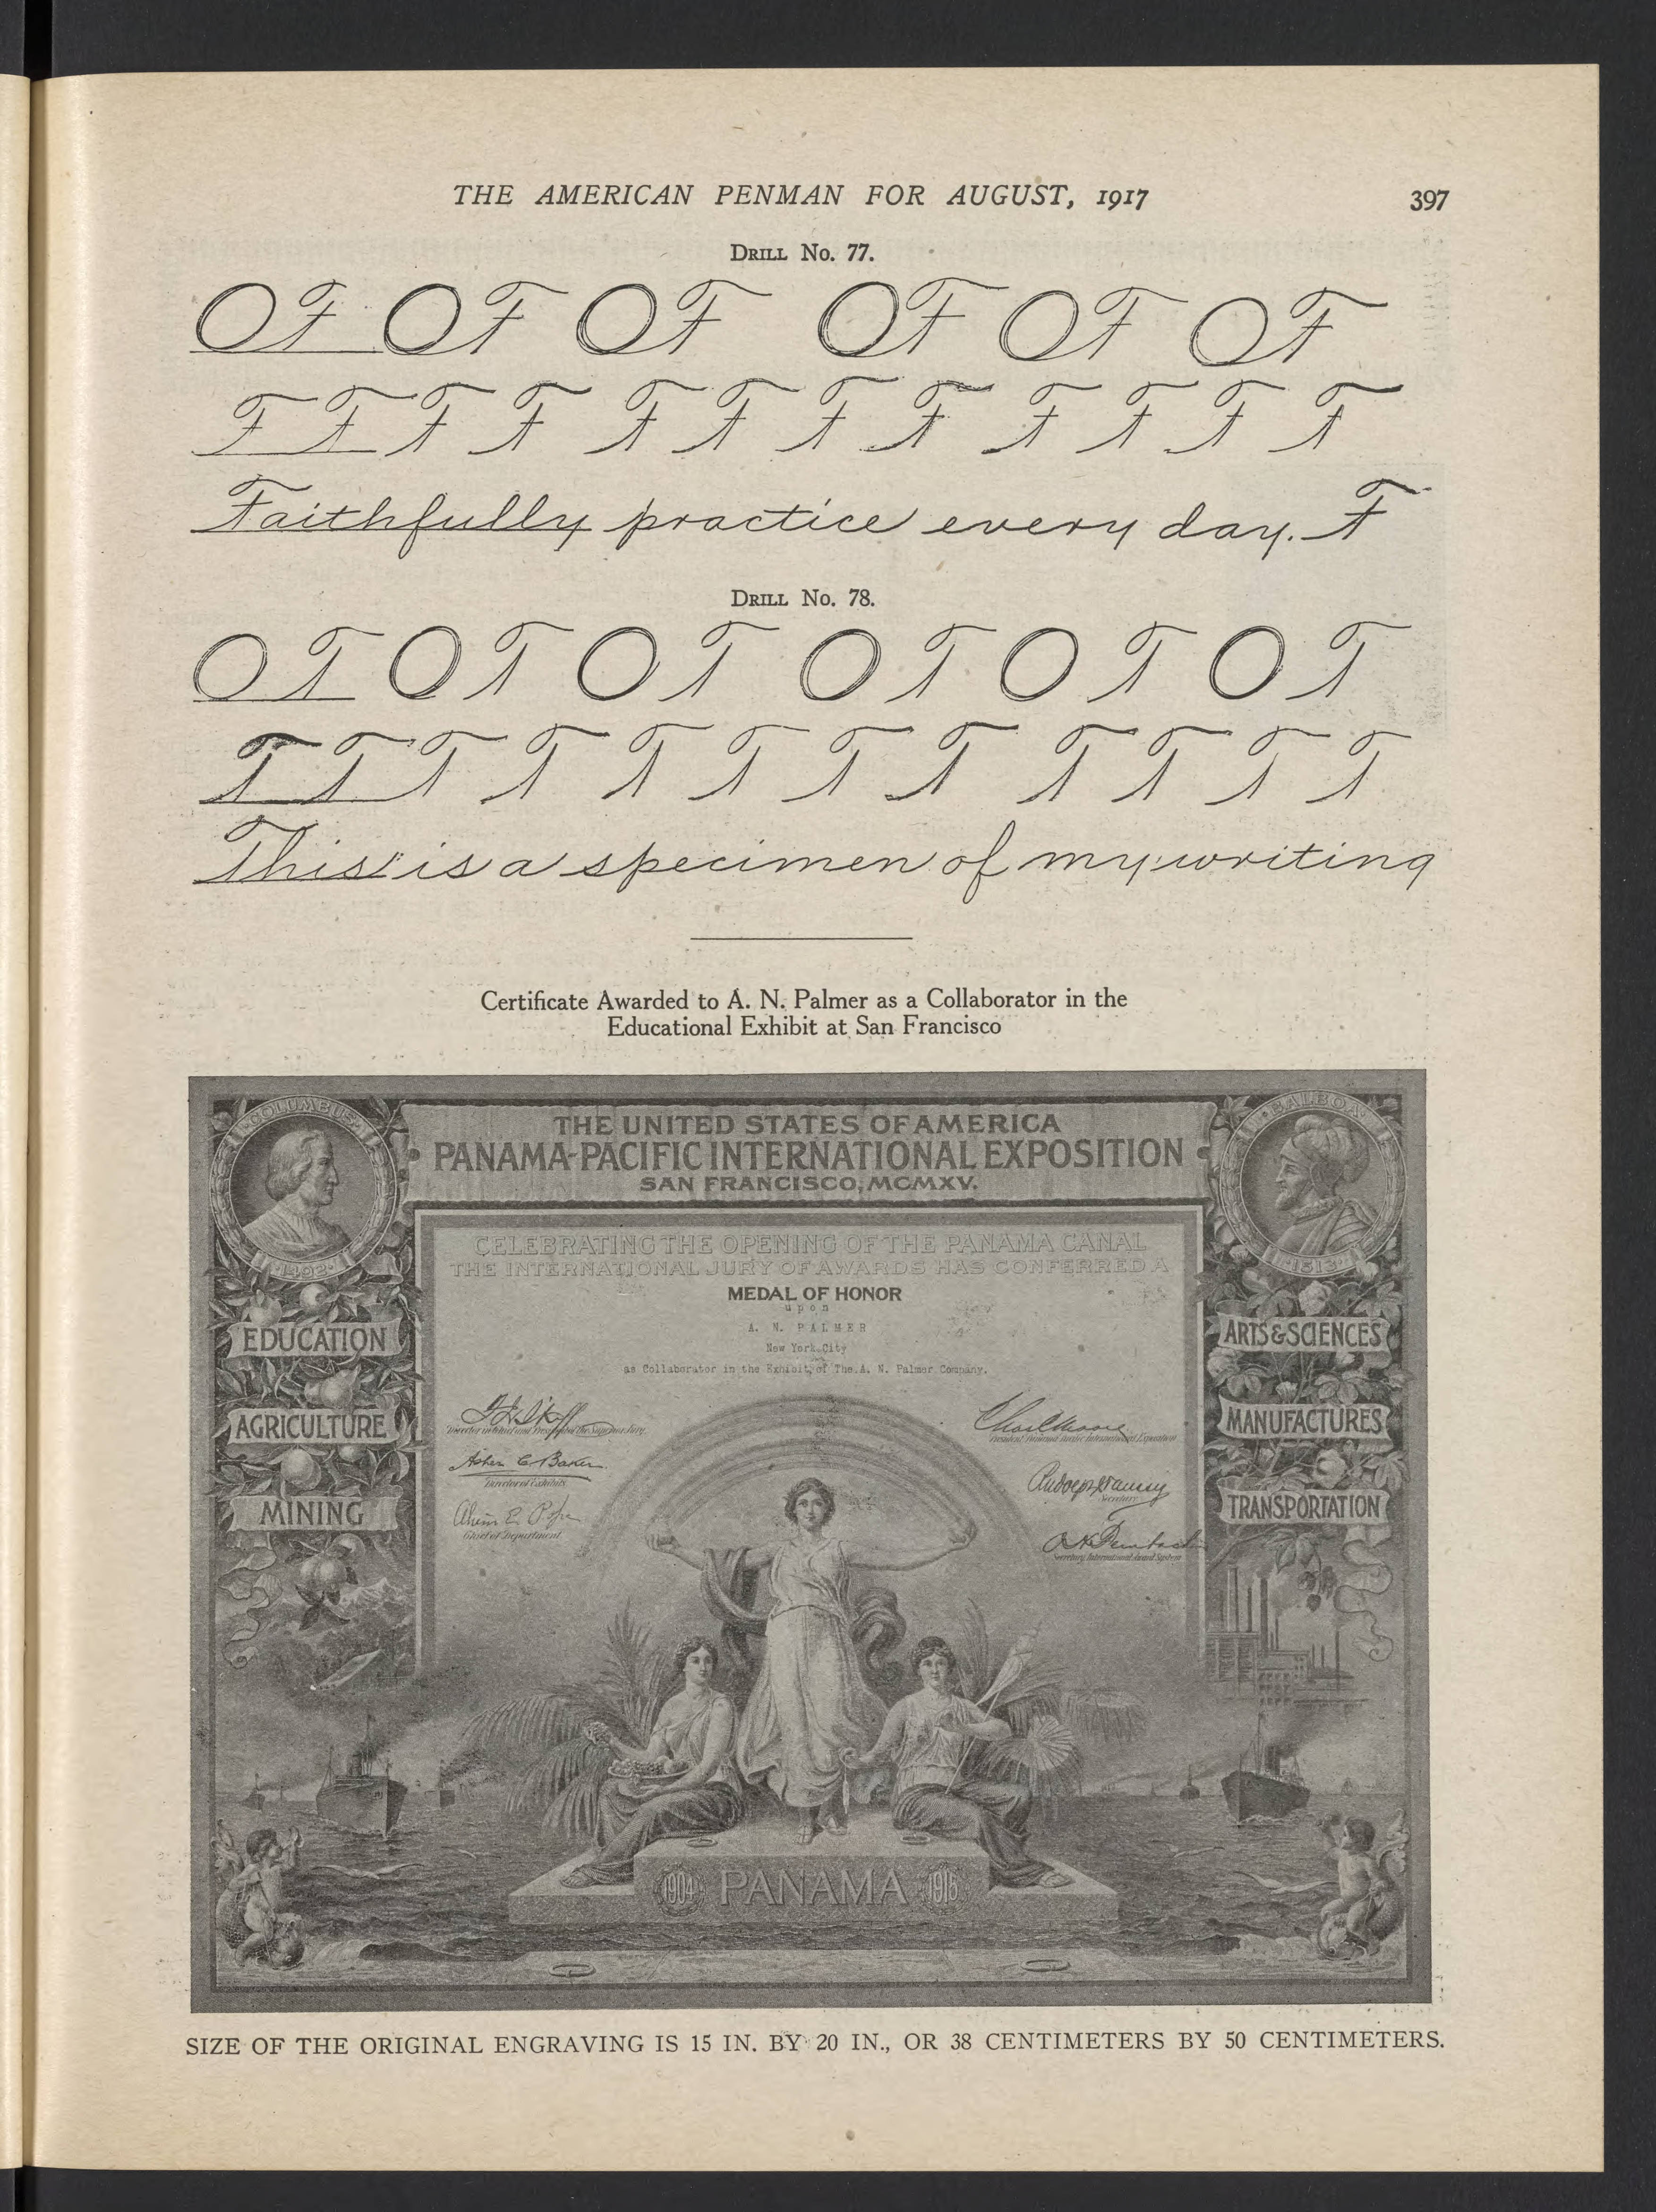 THE AMERICAN PENMAN FOR AUGUST, 1917 397
DRILL No. 77.
OF OF OF OF OF OF
F F F F F F F F F F F F
Faithfully practice every day. F
DRILL No. 78.
O T O T O T O T O T O T
T T T T T T T T T T T T
This is a specimen of my writing
Certificate Awarded to A. N. Palmer as a Collaborator in the
Educational Exhibit at San Francisco
COLUMBUS
1492
BALBOA
1513
THE UNITED STATES OF AMERICA
PANAMA-PACIFIC INTERNATIONAL EXPOSITION
SAN FRANCISCO, MCMXV.
CELEBRATING THE OPENING OF THE PANAMA CANAL
THE INTERNATIONAL JURY OF AWARDS HAS CONFERRED A
MEDAL OF HONOR
upon
A. N. PALMER
New York City
as Collaborator in the Exhibit of The A. N. Palmer Company.
EDUCATION
AGRICULTURE
MINING
ARTS & SCIENCES
MANUFACTURES
TRANSPORTATION
Director in Chief and President of the Superior Jury
Asher C Baker
Director of Exhibits
Alvin E. Pope
Chief of Department
President Panama Pacific International Exposition
Secretary
Secretary International Award System
1904 PANAMA 1915
SIZE OF THE ORIGINAL ENGRAVING IS 15 IN. BY 20 IN., OR 38 CENTIMETERS BY 50 CENTIMETERS.